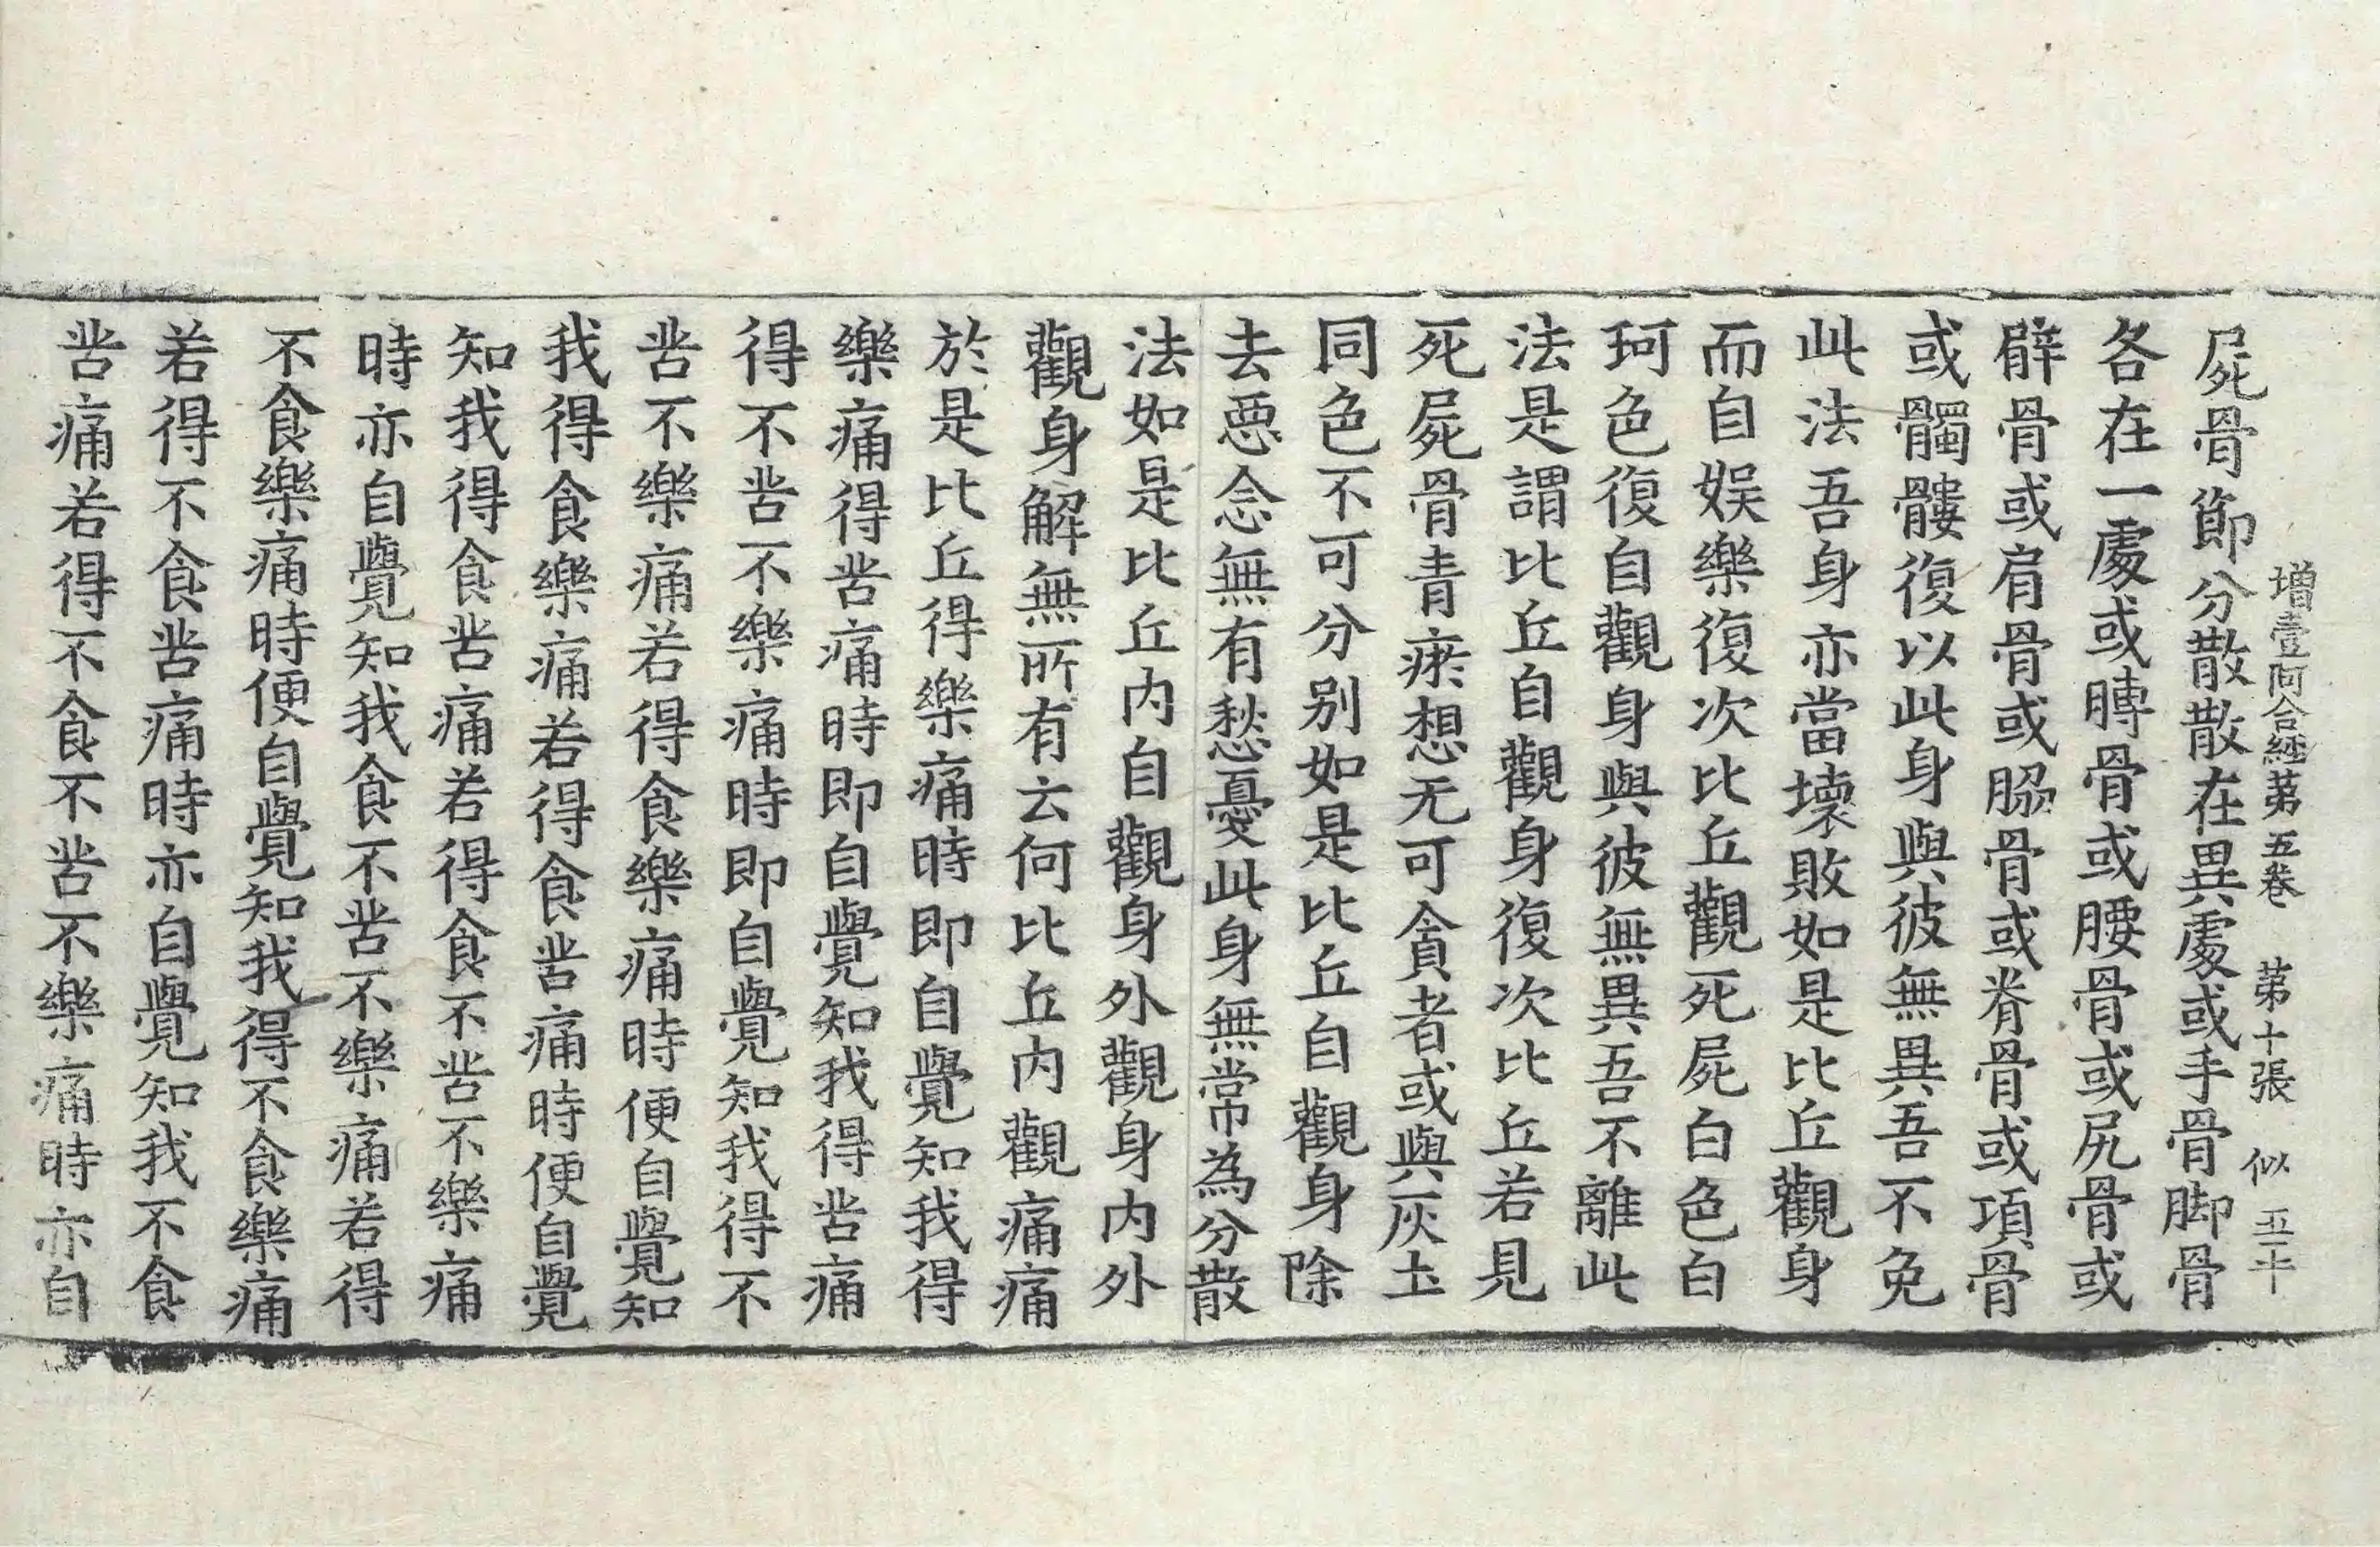 增壹阿含經第五卷 第十張 似 五十
屍骨節分散散在異處或手骨脚骨
各在一處或膞骨或腰骨或尻骨或
臂骨或肩骨或脇骨或脊骨或項骨
或髑髏復以此身與彼無異吾不免
此法吾身亦當壞敗如是比丘觀身
而自娛樂復次比丘觀死屍白色白
珂色復自觀身與彼無異吾不離此
法是謂比丘自觀身復次比丘若見
死屍骨青瘀想无可貪者或與灰土
同色不可分別如是比丘自觀身除
去惡念無有愁憂此身無常為分散
法如是比丘内自觀身外觀身内外
觀身解無所有云何比丘内觀痛痛
於是比丘得樂痛時即自覺知我得
樂痛得苦痛時即自覺知我得苦痛
得不苦不樂痛時即自覺知我得不
苦不樂痛若得食樂痛時便自覺知
我得食樂痛若得食苦痛時便自覺
知我得食苦痛若得食不苦不樂痛
時亦自覺知我食不苦不樂痛若得
不食樂痛時便自覺知我得不食樂痛
若得不食苦痛時亦自覺知我不食
苦痛若得不食不苦不樂痛時亦自